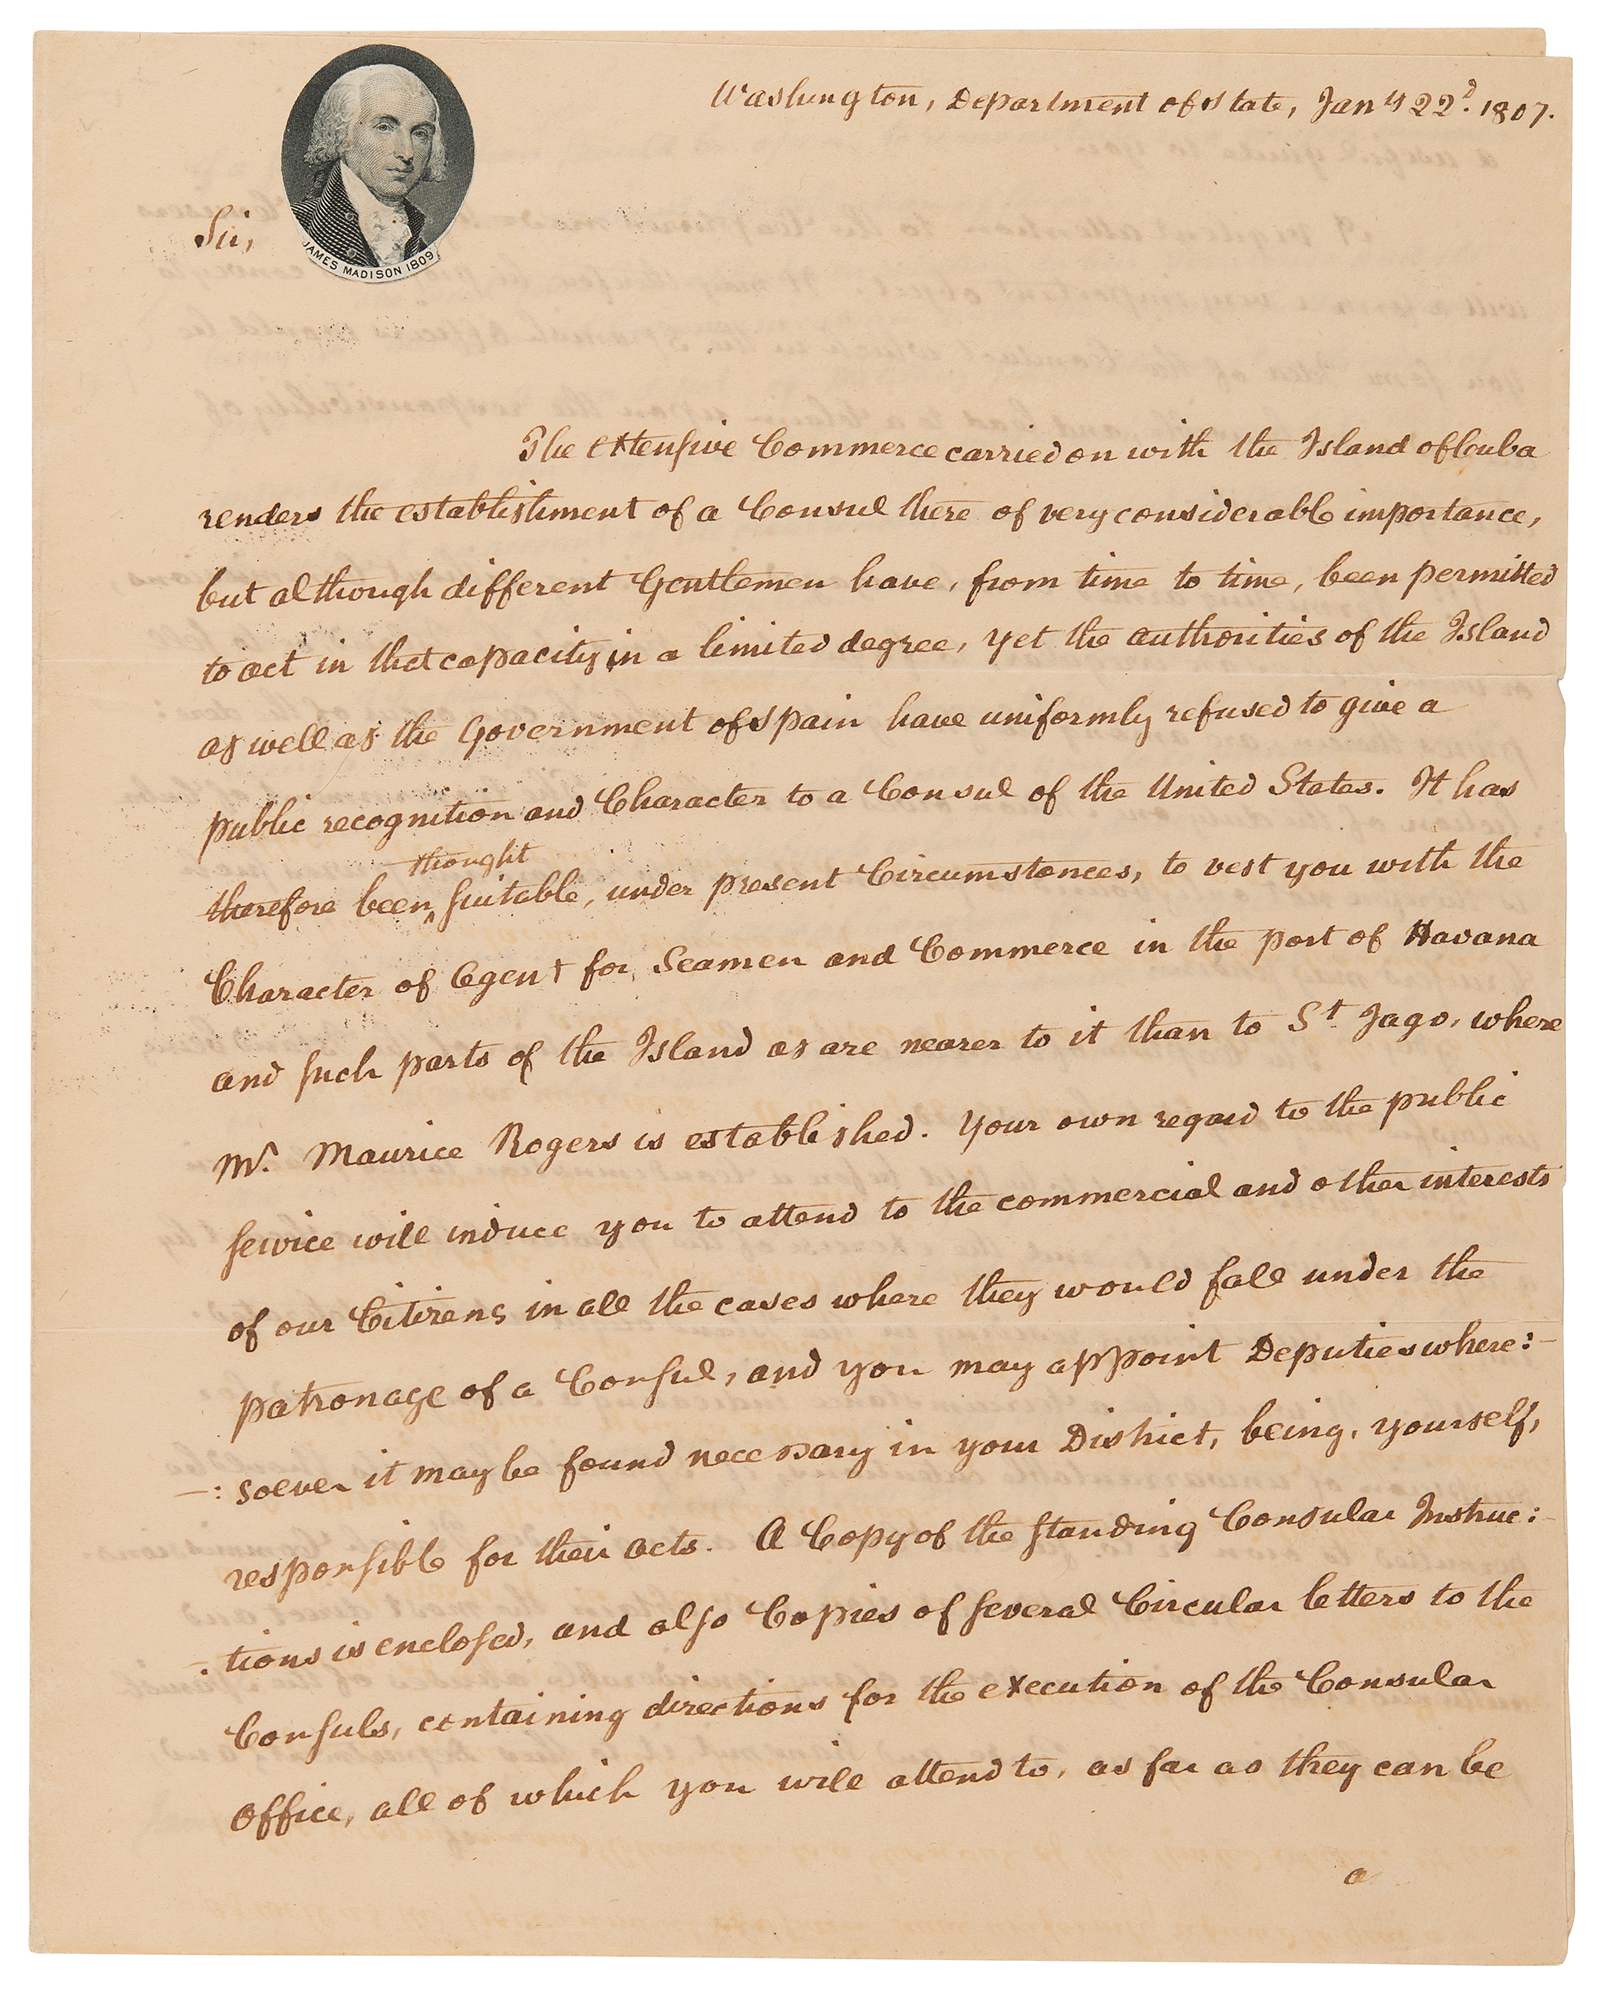 Washington, Department of State, Jany 22d. 1807.
JAMES MADISON 1809
Sir,
The extensive Commerce carried on with the Island of Couba
renders the establishment of a Consul there of very considerable importance,
but although different Gentlemen have, from time to time, been permitted
to act in that capacity in a limited degree, yet the authorities of the Island
as well as the Government of Spain have uniformly refused to give a
public recognition and Character to a Consul of the United States. It has
thought
therefore been ^ suitable, under present Circumstances, to vest you with the
Character of Agent for Seamen and Commerce in the port of Havana
and such parts of the Island as are nearer to it than to St. Jago, where
Mr. Maurice Rogers is established. Your own regard to the public
service will induce you to attend to the commercial and other interests
of our Citizens in all the cases where they would fall under the
patronage of a Consul, and you may appoint Deputies where:-
-: soever it may be found necessary in your District, being, yourself,
responsible for their acts. A Copy of the standing Consular Instruc:-
-: tions is enclosed, and also Copies of several Circular letters to the
Consuls, containing directions for the execution of the Consular
Office, all of which you will attend to, as far as they can be
a